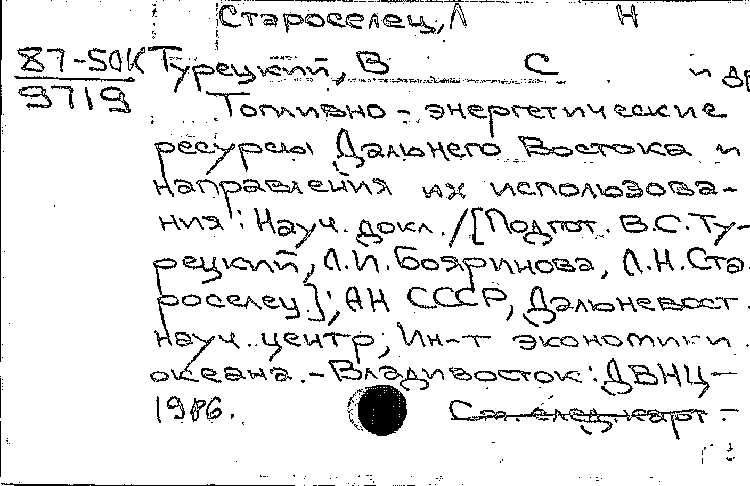 Староселец, Л Н
87-50К Турецкий, В С и др
9719
Топливно-энергетические
ресурсы Дальнего Востока и
направления их использова-
ния: Науч. докл. / [Подгот. В.С. Ту-
рецкий, Л.И. Бояринова, Л.Н. Ста
роселец]; АН СССР, Дальневост.
науч. центр, Ин-т экономики
океана. - Владивосток: ДВНЦ-
1986. См. след. карт.